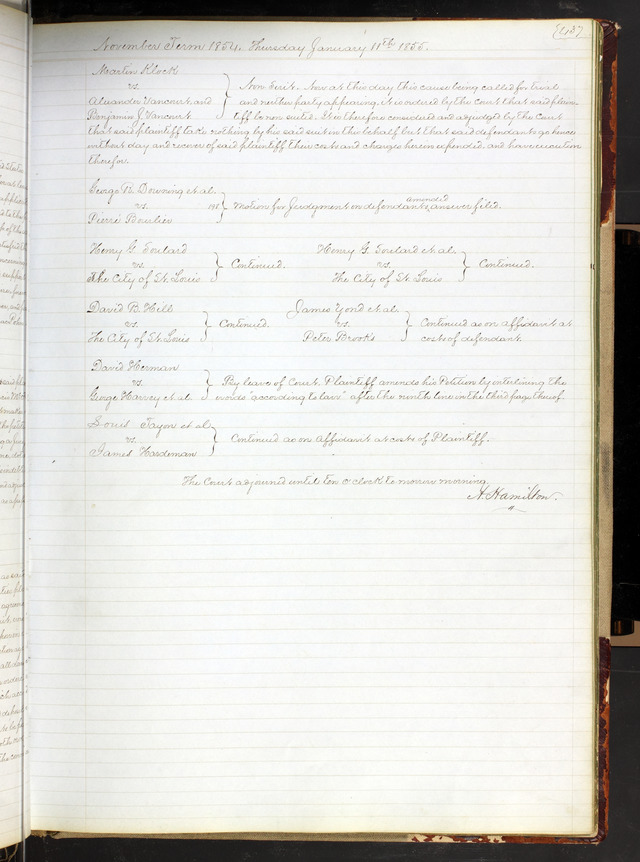 November Term 1854, Thursday January 11th 1855.
Martin Klock
vs.
Alexander Vancourt and
Benjamin J. Vancourt
Non Suit. Now at this day this cause being called for trial
and neither party appearing, it is ordered by the Court that said plain-
tiff be non suited. It is therefore considered and adjudged by the Court
that said plaintiff take nothing by his said suit in this behalf but that said defendants go hence
without day and recover of said plaintiff their costs and charges herein expended, and have execution
therefor.
George B. Downing et al.
vs. 198
Pierre Boulier
Motion for Judgment on defendants amended answer filed.
Henry G. Soulard
vs.
The City of St. Louis
Continued.
Henry G. Soulard et al.
vs.
The City of St. Louis
Continued.
David B. Hill
vs.
The City of St. Louis
Continued.
James Yond et al.
vs.
Peter Brooks
Continued as on affidavit at
costs of defendant.
David Herman
vs.
George Harvey et al.
By leave of Court. Plaintiff amends his Petition by interlining the
words "according to law" after the ninth line on the third page thereof.
Louis Tayon et al
vs.
James Hardeman
Continued as on Affidavit at costs of Plaintiff.
The Court adjourned until ten o'clock to morrow morning.
A. Hamilton.